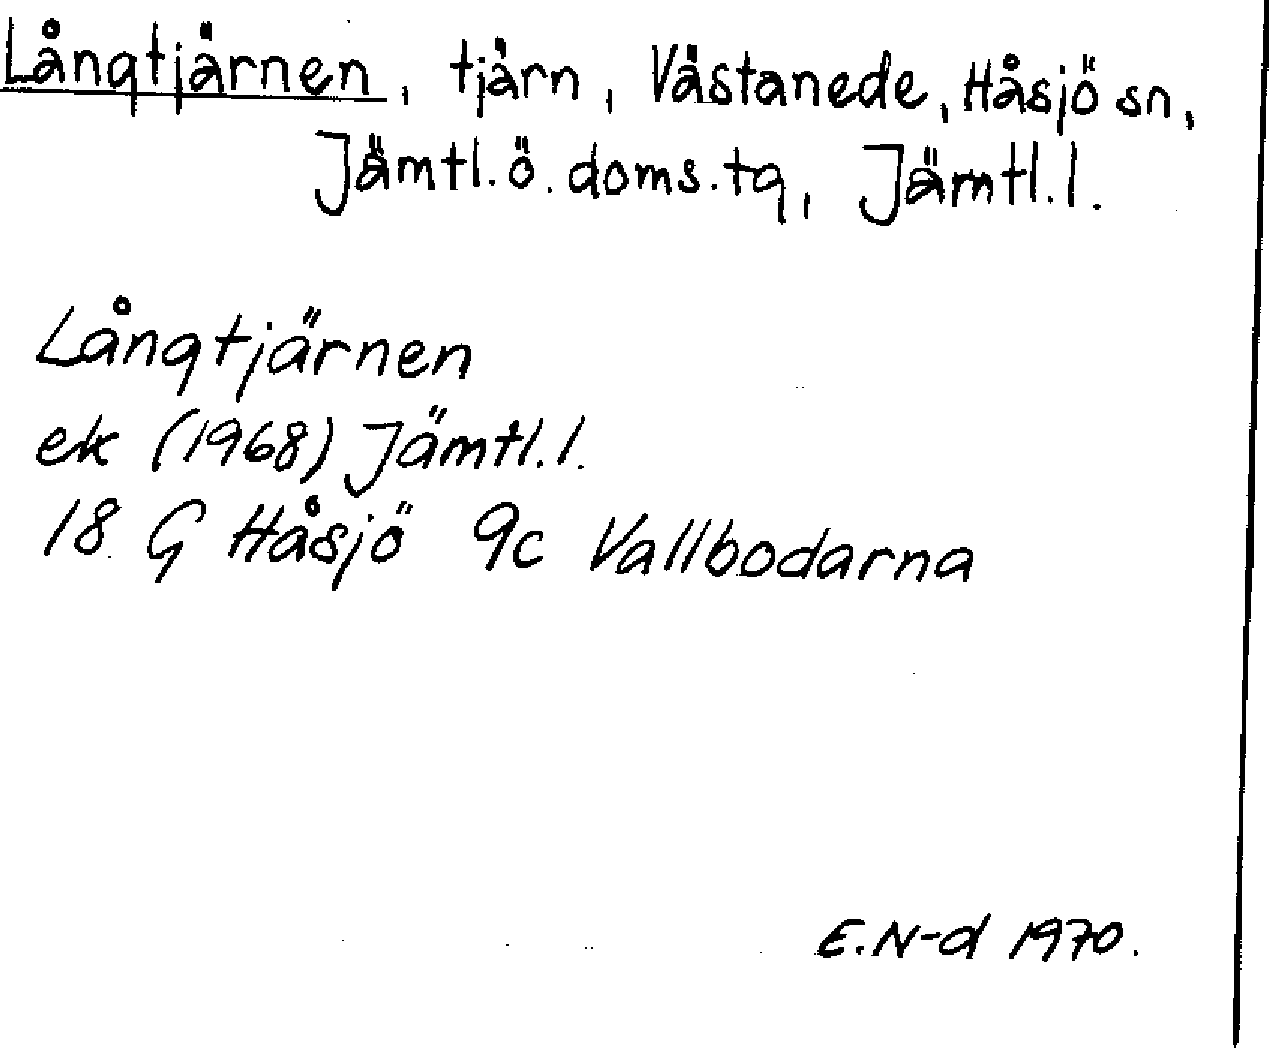 Långtjärnen, tjärn, Västanede, Håsjö sn,
Jämtl.ö.doms.tg, Jämtl.l.
Långtjärnen
ek (1968) Jämtl.l.
18 G Håsjö 9c Vallbodarna
E.N-d 1970.